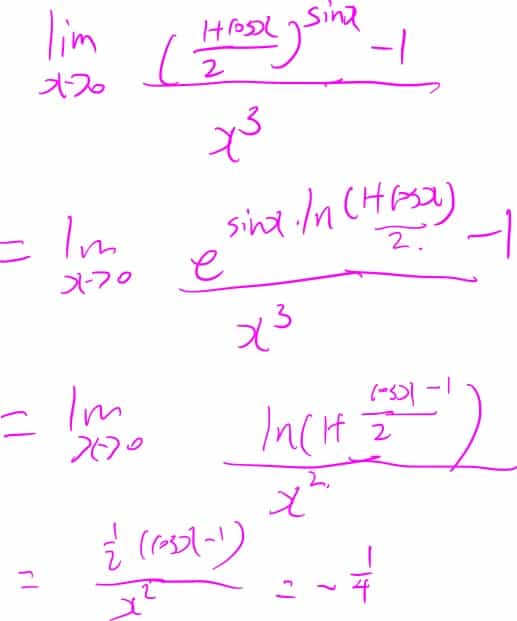 lim x→0 ((1+cosx)/2)^sinx - 1 / x^3
= lim x→0 e^(sinx·ln((1+cosx)/2.)) - 1 / x^3
= lim x→0 ln(1+(cosx-1)/2) / x^2.
= 1/2 (cosx-1) / x^2 = - 1/4